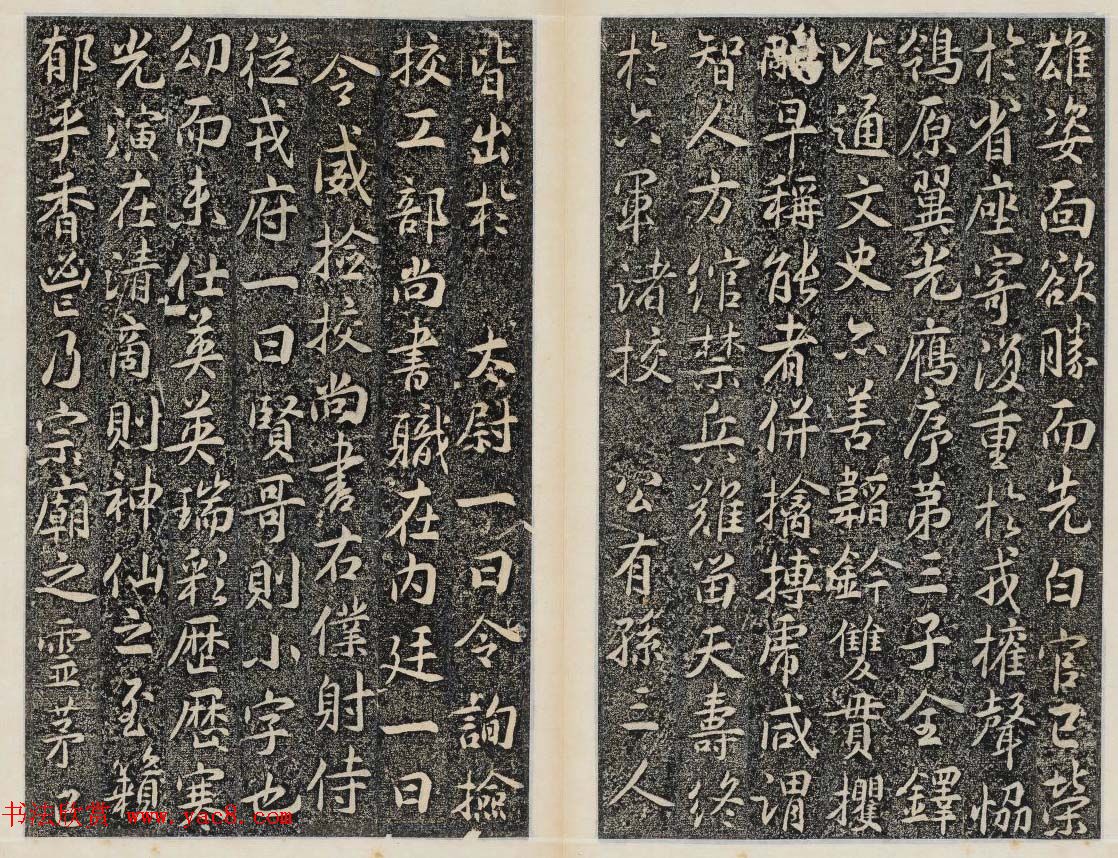 雄姿面欲勝而先白官已榮
於省座寄復重於戎擁聲恊
鴒原翼光鴈序第三子全鐸
比通文史亦善韜鈐雙貫攫
鵰早稱能者併擒搏虎咸謂
智人方綰禁兵難留天壽終
於六軍諸校 公有孫三人
皆出於 太尉一曰令詢檢
校工部尚書職在内廷一曰
令威撿挍尚書右僕射侍
從戎府一曰賢哥則小字也
幼而未仕英英瑞彩歷歷寒
光演在清商則神仙之至籟
郁乎香鬯乃宗廟之靈茅
书法欣赏 www.yac8.com